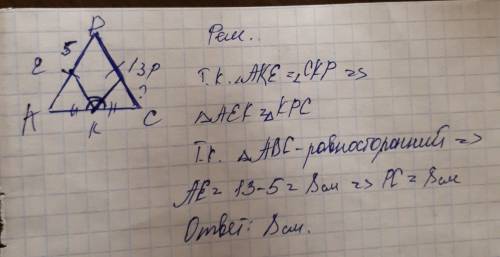 B
5
E
13
P
?
A
K
C
Реш..
Т.к. ∠AKE = ∠CKP =>
△AEK = △KPC
Т.к. △ABC - равносторонний =>
AE = 13 - 5 = 8 см => PC = 8 см
Ответ: 8 см.